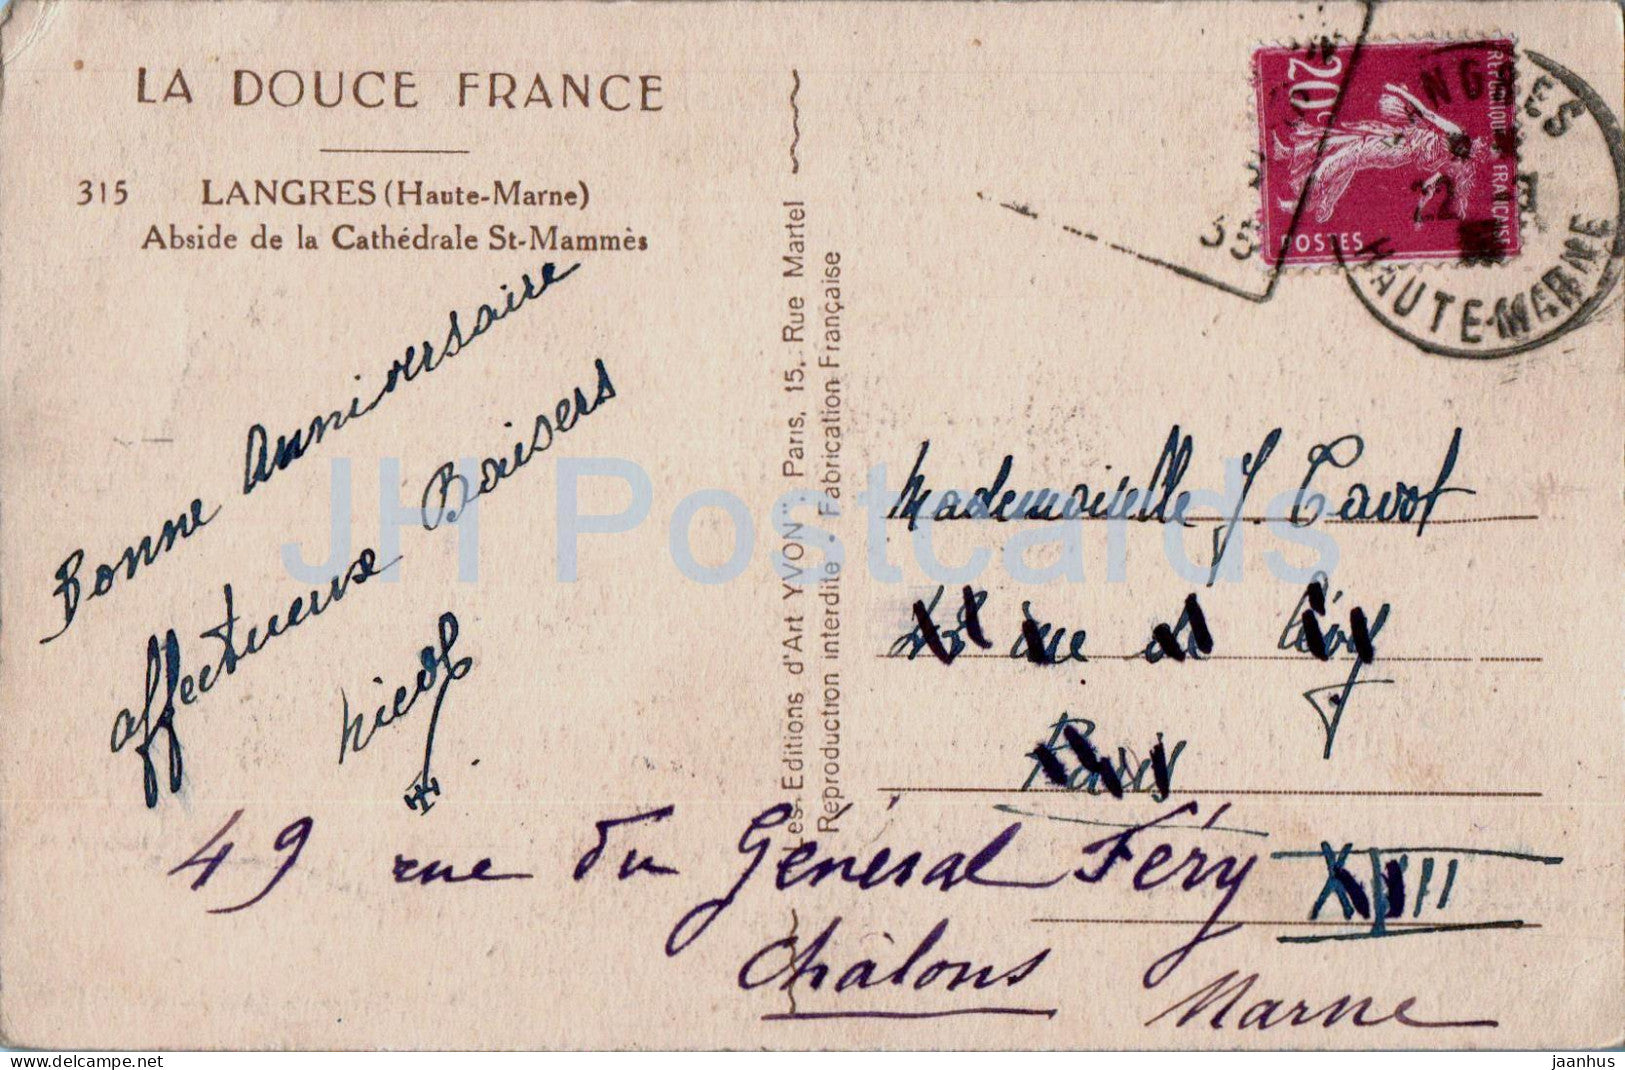 LA DOUCE FRANCE
315 LANGRES (Haute-Marne)
Abside de la Cathédrale St-Mammès
Bonne Anniversaire
affectueux Baisers
Nicol
Les Editions d'Art "YVON" Paris, 15, Rue Martel
Reproduction interdite. Fabrication Française
20c
POSTES
REPUBLIQUE FRANÇAISE
LANGRES
22
HAUTE-MARNE
Mademoiselle J. Cavot
rue de
Paris
XVIII
49 rue du Général Féry
Châlons
Marne
JH Postcards
delcampe.net
jaanhus